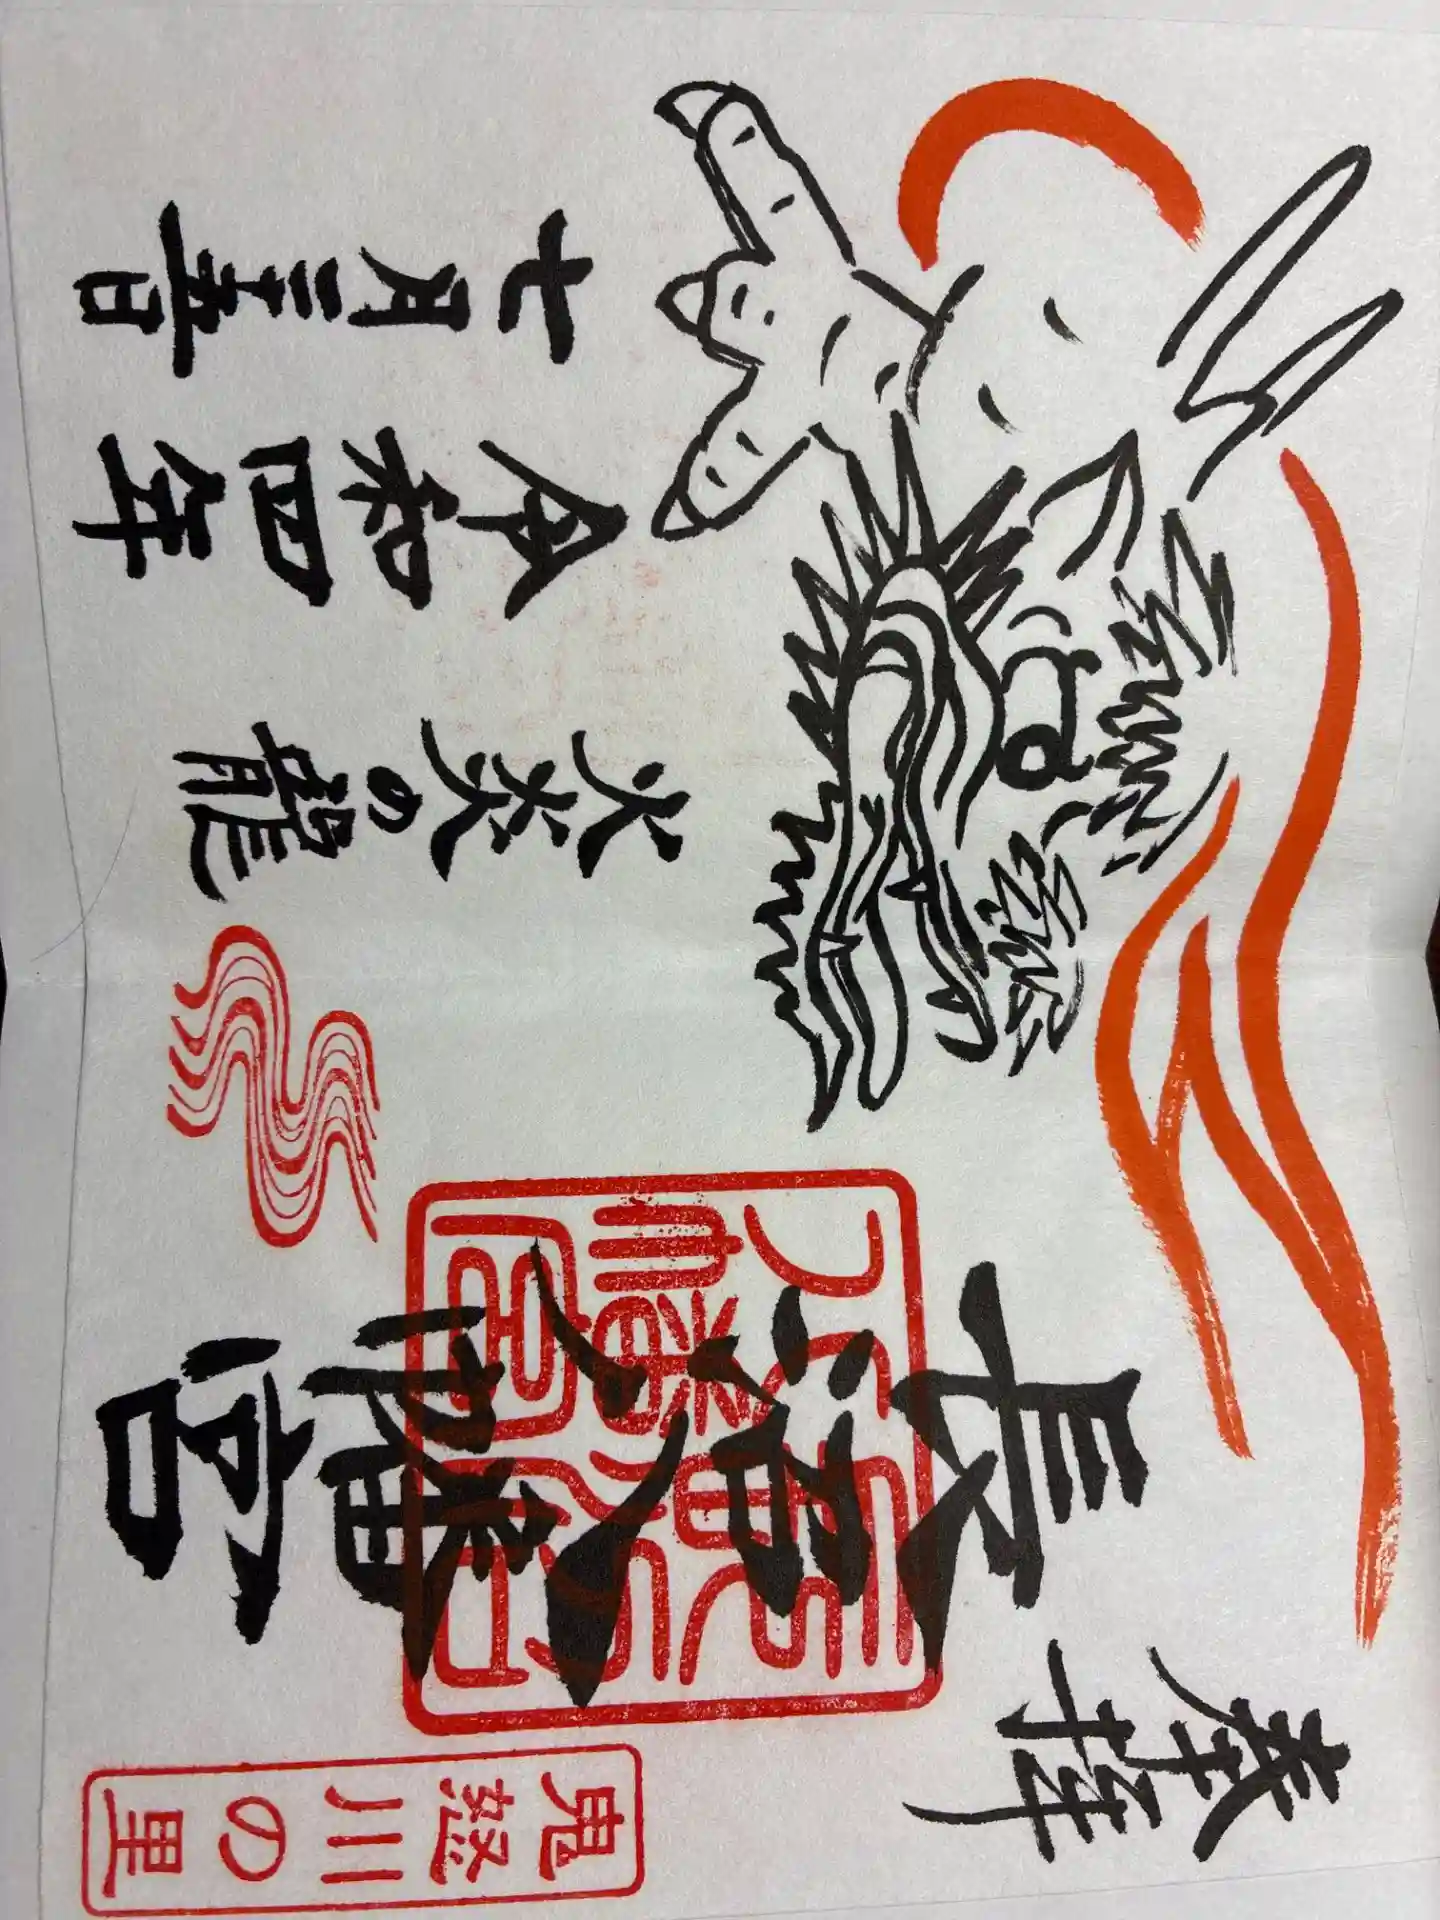 奉拝
鬼怒川の里
長沼八幡宮
火炎の龍
令和四年
七月二十五日